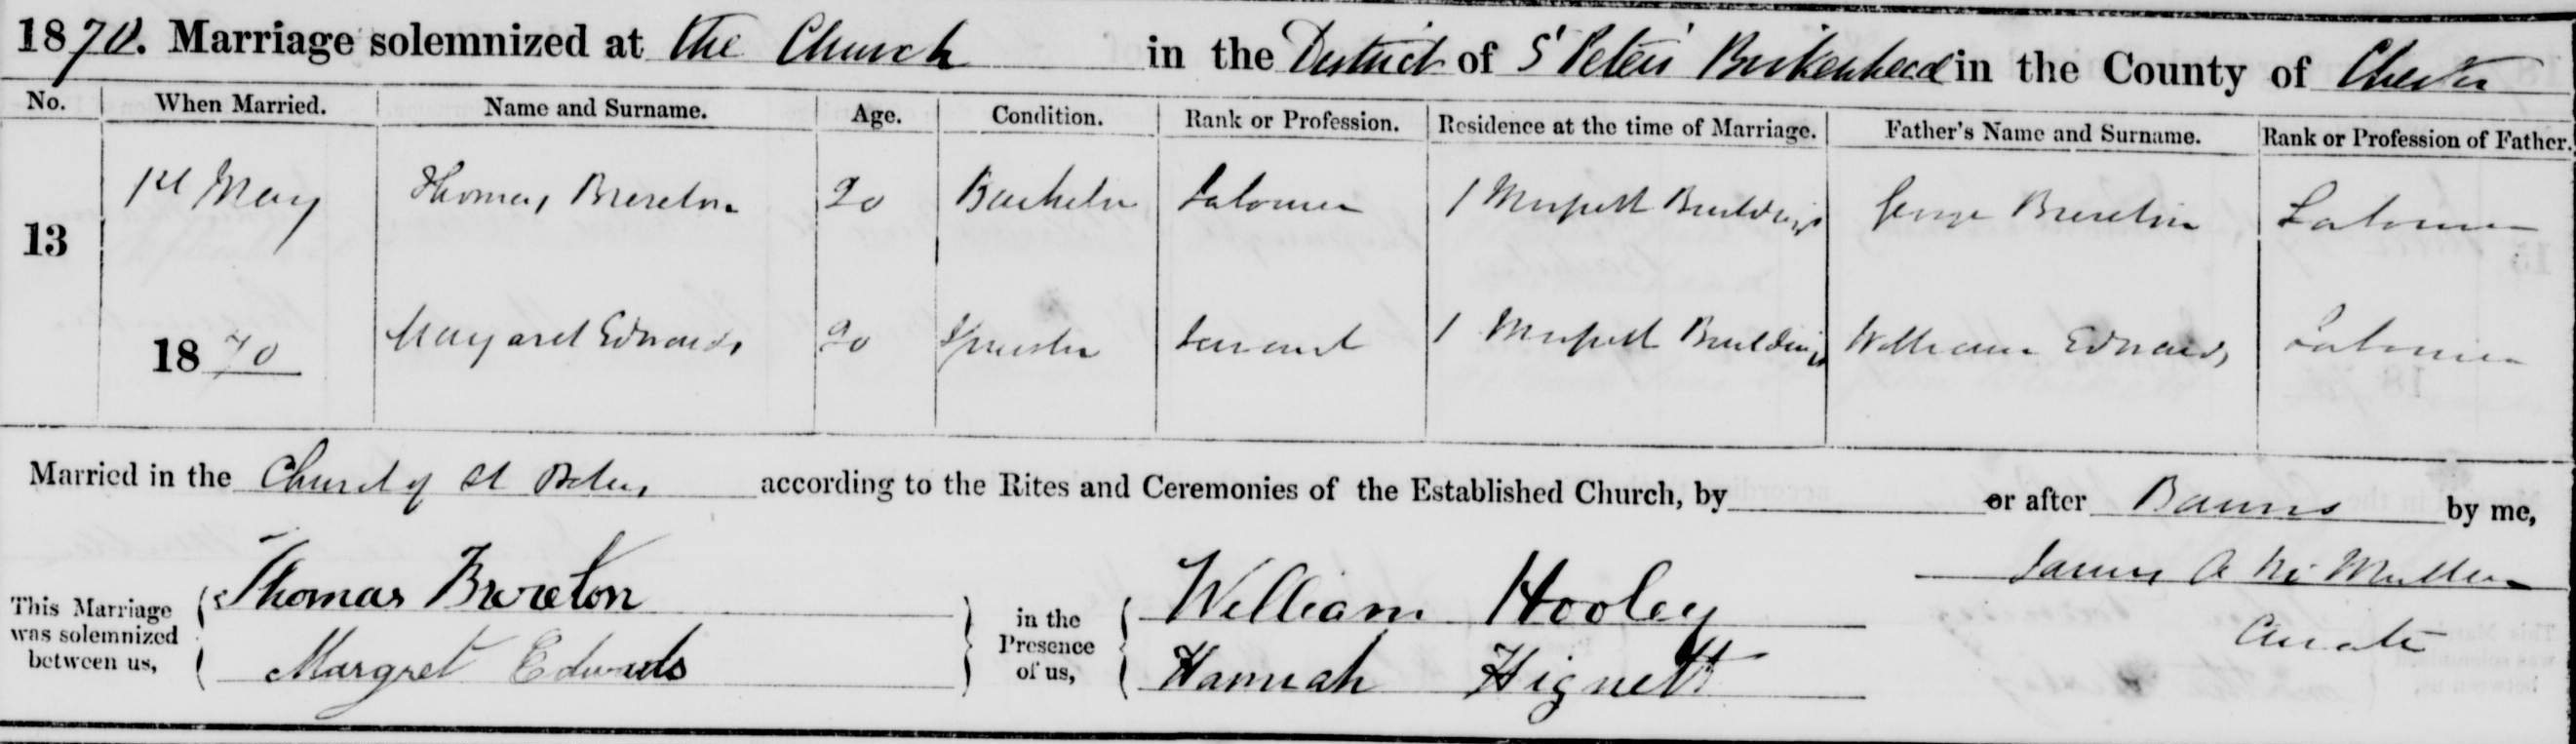 1870. Marriage solemnized at the Church in the District of St Peters Birkenhead in the County of Chester
No. When Married. Name and Surname. Age. Condition. Rank or Profession. Residence at the time of Marriage. Father's Name and Surname. Rank or Profession of Father.
1st May Thomas Brereton 20 Bachelor Labourer 1 Buildings George Brereton Labourer
13
1870 Margaret Edwards 20 Spinster Servant 1 Buildings William Edwards Labourer
Married in the Church of St Peters according to the Rites and Ceremonies of the Established Church, by or after Banns by me,
This Marriage was solemnized between us, Thomas Brereton in the Presence of us, William Hooley James A McMullen
Margret Edwards Hannah Hignett Curate